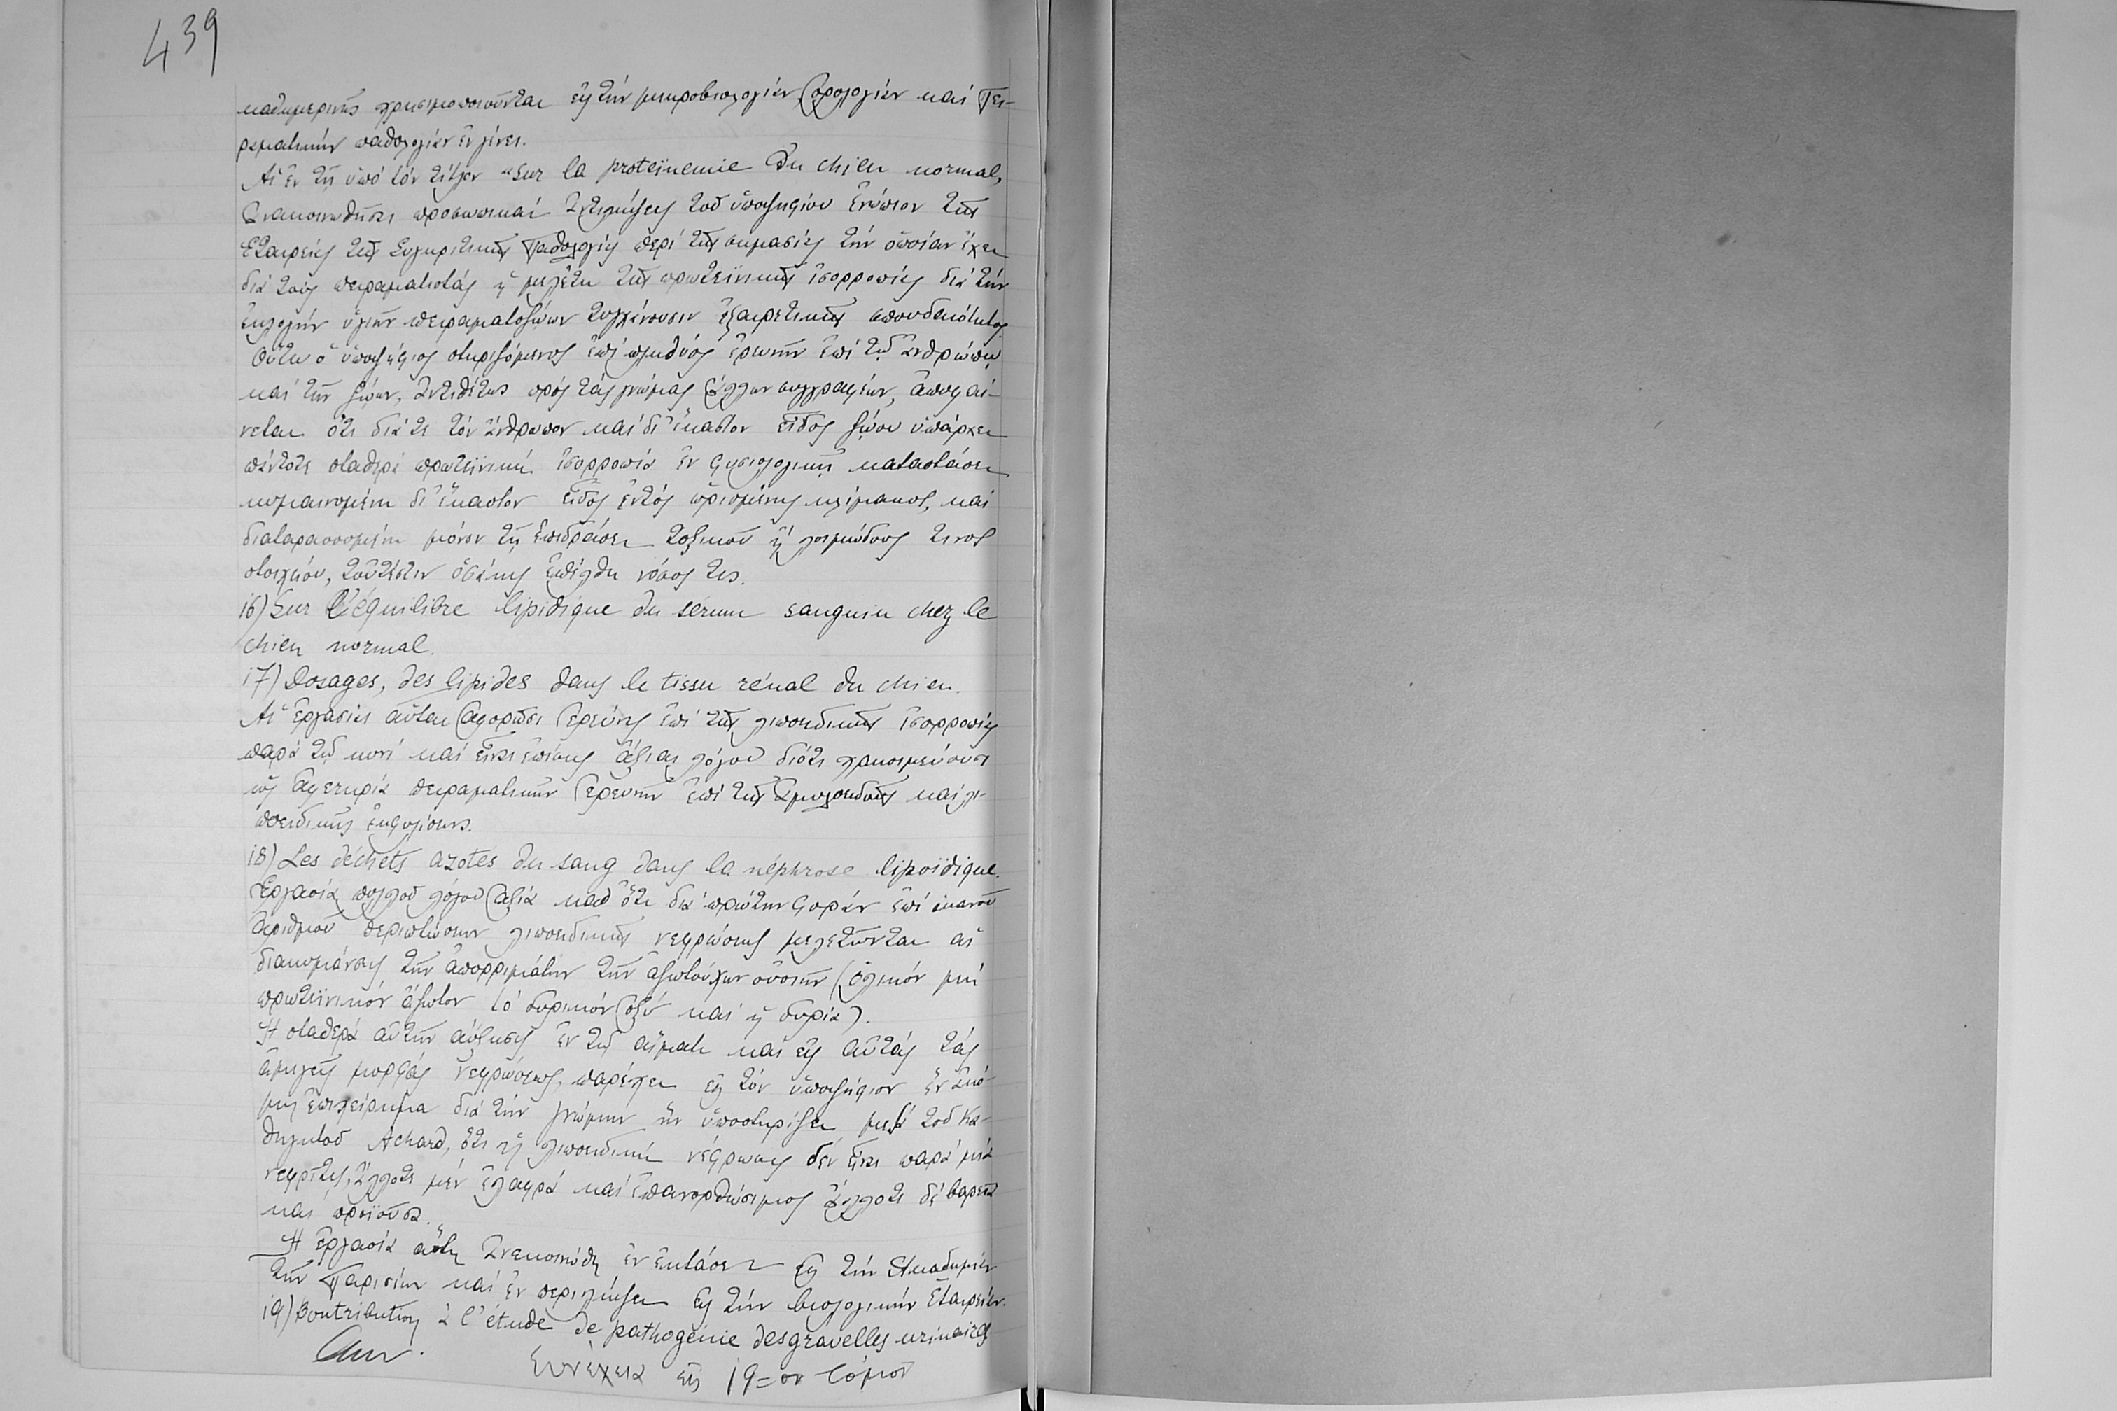 439
καθημερινῶς χρησιμοποιοῦνται εἰς τήν μικροβιολογίαν, ὀρολογίαν καί Πει-
ραματικήν παθολογίαν ἐν γένει.
Αἱ ἐν τῇ ὑπό τόν τίτλον "Sur la proteïnemie du chien normal,
ἀνακοινωθεῖσαι προσωπικαί ἀντιλήψεις τοῦ ὑποψηφίου ἐνώπιον τῆς
Ἑταιρείας τῆς Συγκριτικῆς Παθολογίας περί τῆς σημασίας τήν ὁποίαν ἔχει
διά τούς πειραματιστάς ἡ μελέτη τῆς πρωτεϊνικῆς ἰσορροπίας διά τήν
ἐκλογήν ὑγιῶν πειραματοζώων τυγχάνουσιν ἐξαιρετικῆς σπουδαιότητος.
Οὕτω ὁ ὑποψήφιος στηριζόμενος ἐπί πληθύος ἐρευνῶν ἐπί τοῦ ἀνθρώπου
καί τῶν ζώων, ἀντιθέτως πρός τάς γνώμας ἄλλων συγγραφέων, ἀποφαί-
νεται ὅτι διά τε τόν ἄνθρωπον καί δι' ἕκαστον εἶδος ζώου ὑπάρχει
πάντοτε σταθερά πρωτεϊνική ἰσορροπία ἐν φυσιολογικῇ καταστάσει
κυμαινομένη δι' ἕκαστον εἶδος ἐντός ὡρισμένης κλίμακος, καί
διαταρασσομένη μόνον τῇ ἐπιδράσει τοξικοῦ ἤ λοιμώδους τινος
στοιχείου, τοὐτέστιν ὁσάκις ἐπέλθη νόσος τις.
16) Sur l'équilibre lipidique du sérum sanguin chez le
chien normal.
17) Dosages, des lipides dans le tissu rénal du chien.
Αἱ ἐργασίαι αὗται ἀφορῶσι ἐρεύνας ἐπί τῆς λιποειδικῆς ἰσορροπίας
παρά τῷ κυνί καί εἶναι ἐπίσης ἄξιαι λόγου διότι χρησιμεύουσι
ὡς ἀφετηρία πειραματικῶν ἐρευνῶν ἐπί τῆς ἀμυλοειδοῦς καί λι-
ποειδικῆς ἐκφυλίσεως.
18) Les déchets azotés du sang dans la néphrose lipoïdique.
Ἐργασία πολλοῦ λόγου ἀξία καθ' ὅτι διά πρώτην φοράν ἐπί ἱκανοῦ
ἀριθμοῦ περιπτώσεων λιποειδικῆς νεφρώσεως μελετῶνται αἱ
διακυμάνσεις τῶν ἀπορριμάτων τῶν ἀζωτούχων οὐσιῶν (ὁλικόν μή
πρωτεϊνικόν ἄζωτον τό οὐρικόν ὀξύ καί ἡ οὐρία).
Ἡ σταθερά αὐτῶν αὔξησις ἐν τῷ αἵματι καί εἰς αὐτάς τάς
ἀμιγεῖς μορφάς νεφρώσεως, παρέχει εἰς τόν ὑποψήφιον ἐν ἀκό-
μη ἐπιχείρημα διά τήν γνώμην ἥν ὑποστηρίζει μετά τοῦ Κα-
θηγητοῦ Achard, ὅτι ἡ λιποειδική νέφρωσις δέν εἶναι παρά μία
νεφρῖτις, ἄλλοτε μέν ἐλαφρά καί ἐπανορθώσιμος ἄλλοτε δέ βαρεῖα
και προϊοῦσα.
Ἡ ἐργασία αὕτη ἀνεκοινώθη ἐν ἐκτάσει εἰς τήν Ἀκαδημίαν
τῶν Παρισίων καί ἐν περιλήψει εἰς τήν βιολογικήν Ἑταιρείαν.
19) Contribution à l'étude de pathogénie des gravelles urinaires
Συνέχεια εἰς 19=ον τόμον